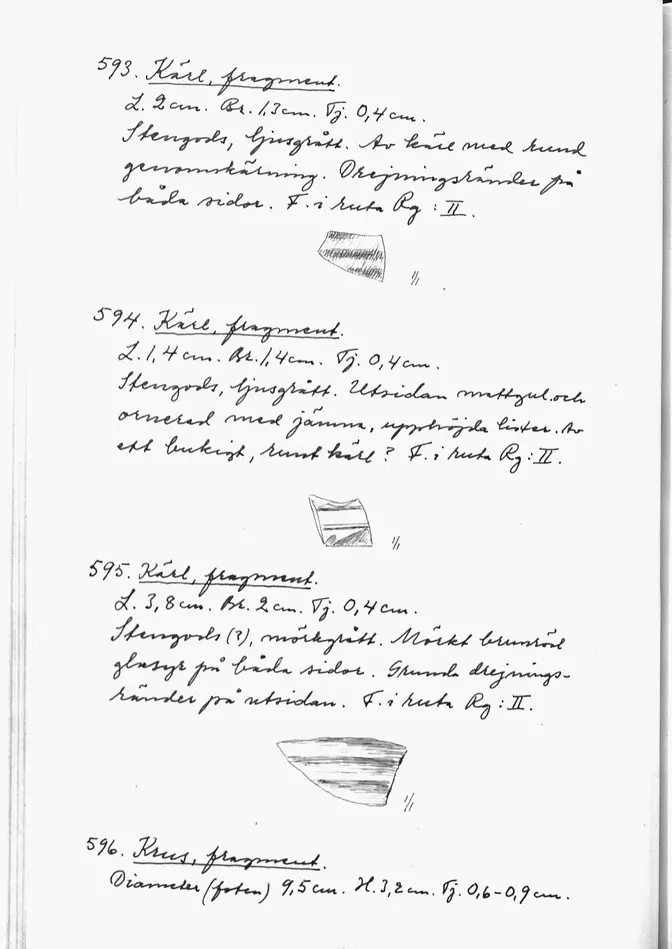 593. Kärl, fragment.
L. 2 cm. Br. 1,3 cm. Tj. 0,4 cm.
Stengods, ljusgrått. Av kärl med rund
genomskärning. Drejningsränder på
båda sidor. F. i ruta Rg : II.
1/1
594. Kärl, fragment.
L. 1,4 cm. Br. 1,4 cm. Tj. 0,4 cm.
Stengods, ljusgrått. Utsidan mattgul och
ornerad med jämna, upphöjda lister. Av
ett bukigt, runt kärl? F. i ruta Rg : II.
1/1
595. Kärl, fragment.
L. 3,8 cm. Br. 2 cm. Tj. 0,4 cm.
Stengods (?), mörkgrått. Mörkt brunröd
glasyr på båda sidor. Grunda drejnings-
ränder på utsidan. F. i ruta Rg : II.
1/1
596. Krus, fragment.
Diameter (foten) 9,5 cm. H. 3,2 cm. Tj. 0,6-0,9 cm.